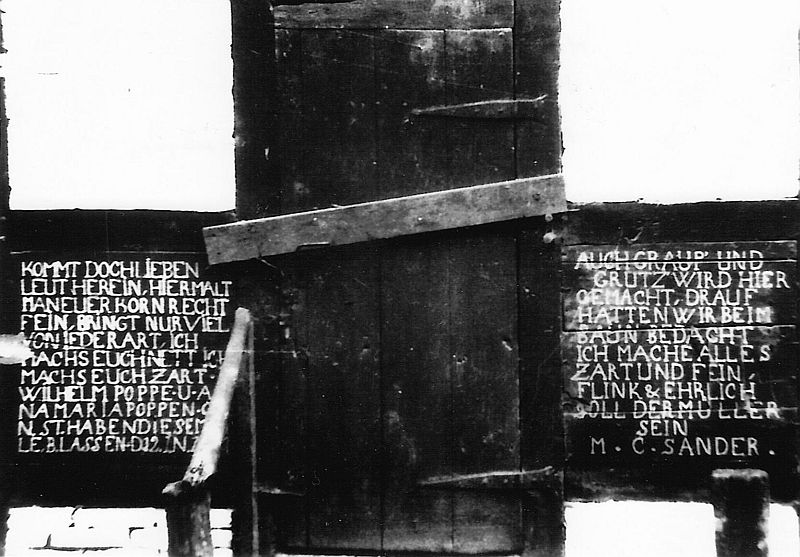 KOMMT DOCH LIEBEN
LEUT HEREIN, HIER MALT
MAN EUER KORN RECHT
FEIN, BRINGT NUR VIEL
VON JEDER ART, ICH
MACHS EUCH NETT ICH
MACHS EUCH ZART.
WILHELM POPPE. U. A
NA MARIA POPPEN.
N. ST. HABEN DIESE M
LE. B. LASSEN. D 12. IN.
AUCH GRAUP' UND
GRÜTZ WIRD HIER
GEMACHT, DRAUF
HATTEN WIR BEIM
BAUN BEDACHT
ICH MACHE ALLES
ZART UND FEIN,
FLINK & EHRLICH
SOLL DER MÜLLER
SEIN
M. C. SANDER.